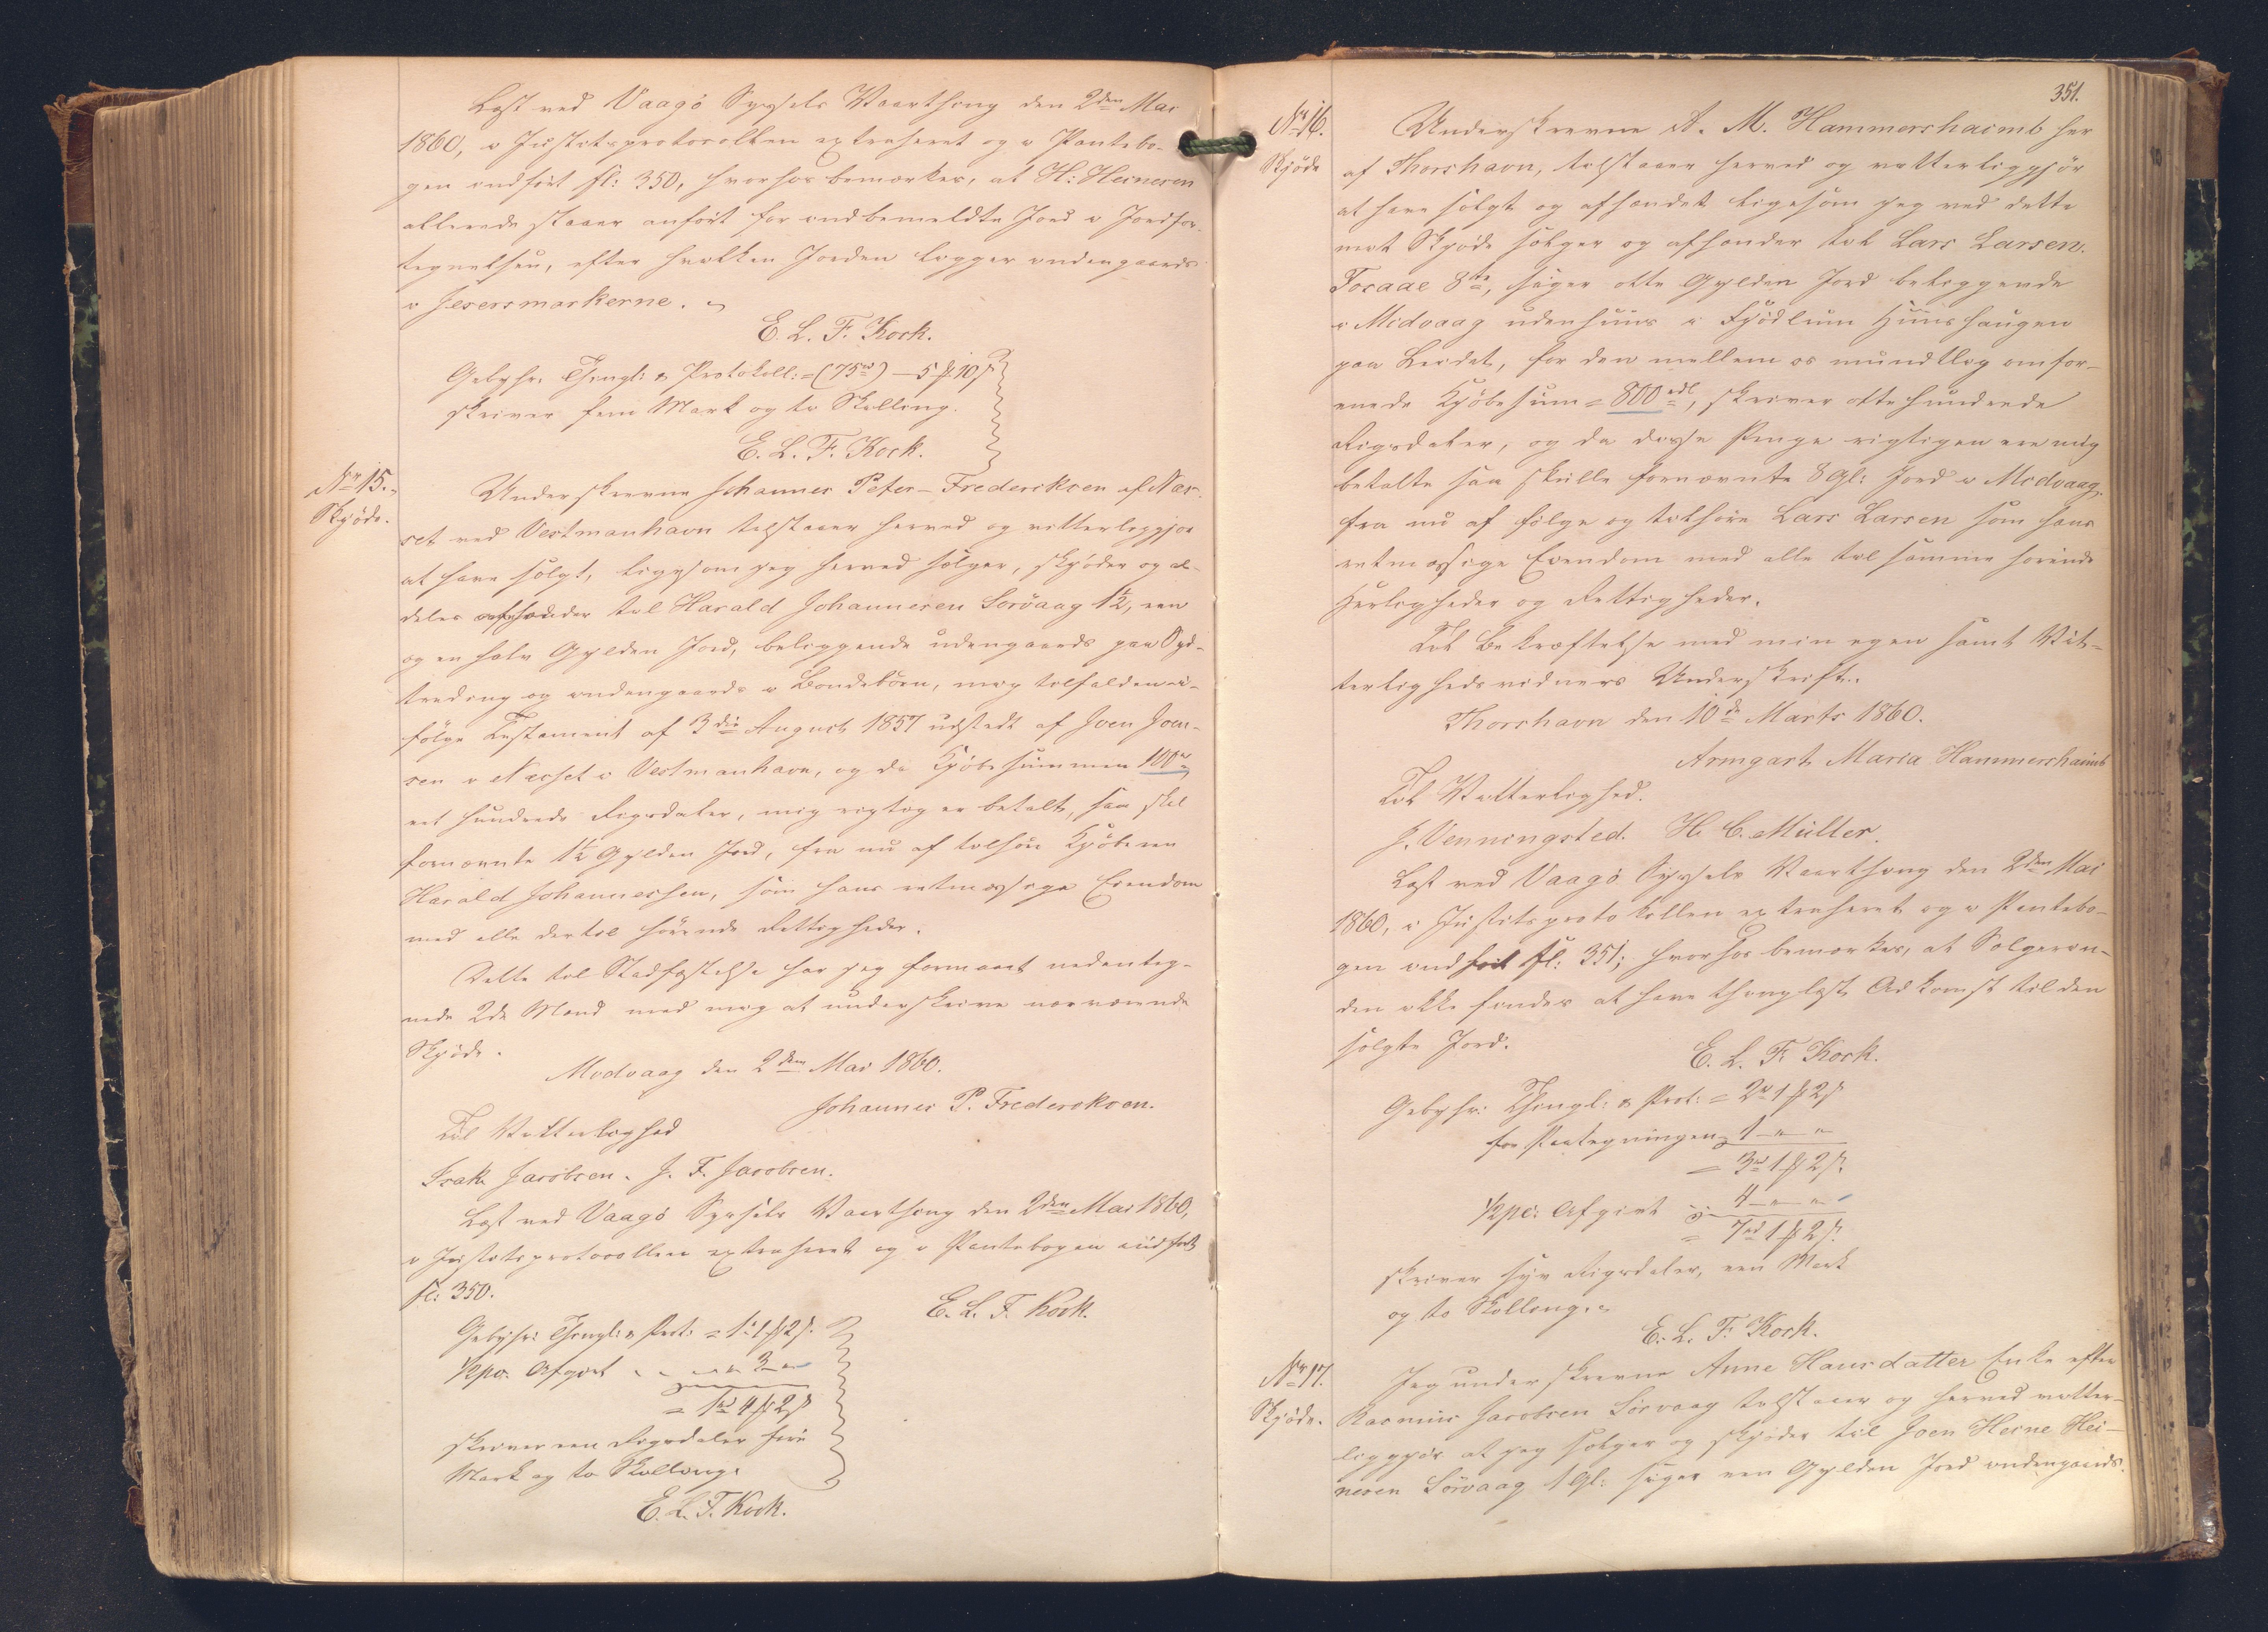 Læst ved Vaagö Syssels Vaarthing den 2den Mai
1860, i Justitsprotocollen extraheret og i Pantebo-
gen indfört fl: 350, hvorhos bemærkes, at H: Heinesen
allerede staaer anfört for indbemeldte Jord i Jordfor-
tegnelsen, efter hvilken Jorden ligger indengaards
i Jeversmarkerne.
E. L. F. Kock.
Gebyhr: Thingl: & Protokoll: = (75rd) — 5 ℳ 10 ß
skriver fem Mark og ti Skilling.
E. L. F. Kock.
No 15.
Skjöde.
Underskrevne Johannes Peter Frederiksen af Næs-
set ved Vestmanhavn tilstaaer herved og vitterliggjör
at have solgt, ligesom jeg herved sælger, skjöder og al-
deles afhænder til Harald Johannesen Sörvaag 1½, een
og en halv Gylden Jord, beliggende udengaards paa Syd-
treding og indengaards i Bondeböen, mig tilfalden i-
fölge Testament af 3die August 1857 udstedt af Joen Joen-
sen i Næsset i Vestmanhavn, og da Kjöbesummen 100rd
eet hundrede Rigsdaler, mig rigtig er betalt, saa skal
fornævnte 1½ Gylden Jord, fra nu af tilhöre Kjöberen
Harald Johannessen, som hans retmæssige Eiendom
med alle dertil hörende Rettigheder.
Dette til Stadfæstelse har jeg formaaet nedenteg-
nede 2de Mænd med mig at underskrive nærværende
Skjöde.
Midvaag den 2den Mai 1860.
Johannes P. Frederiksen.
Til Vitterlighed
Isak Jacobsen. J. F. Jacobsen.
Læst ved Vaagö Syssels Vaarthing den 2den Mai 1860,
i Justitsprotocollen extraheret og i Pantebogen indfört
fl: 350.
E. L. F. Kock.
Gebyhr: Thingl: & Prot: = 1rd 1 ℳ 2 ß.
½pC. Afgivt „ 3 „
= 1rd 4 ℳ 2 ß
skriver een Rigsdaler fire
Mark og to Skilling.
E. L. F. Kock.
351.
No 16.
Skjöde
Underskrevne A. M. Hammershaimb her
af Thorshavn, tilstaaer herved og vitterliggjör
at have solgt og afhændet ligesom jeg ved dette
mit Skjöde sælger og afhænder til Lars Larsen
8te, siger otte Gylden Jord beliggende
i Midvaag udenhuus i Fjödlum Huushaugen
paa Leidet, for den mellem os mundtlig omfor-
enede Kjöbesum = 800rdl, skriver otte hundrede
Rigsdaler, og da disse Penge rigtigen ere mig
betalte saa skulle fornævnte 8 Gl: Jord i Midvaag,
fra nu af fölge og tilhöre Lars Larsen som hans
retmæssige Eiendom med alle til samme hörende
Herligheder og Rettigheder.
Til Bekræftelse med min egen samt Vit-
terlighedsvidners Underskrift.
Thorshavn den 10de Marts 1860.
Armgart Maria Hammershaimb
Til Vitterlighed.
J. Venningsted. H. C. Müller.
Læst ved Vaagö Syssels Vaarthing den 2den Mai
1860, i Justitsprotokollen extraheret og i Pantebo-
gen indfört fl: 351; hvorhos bemærkes, at Sælgerin-
den ikke findes at have thinglæst Adkomst til den
solgte Jord.
E. L. F. Kock.
Gebyhr: Thingl: & Prot: = 2rd 1 ℳ 2 ß
for Paategningen 1 „ „
= 3rd 1 ℳ 2 ß.
½pC: Afgivt 4 „ „
= 7rd 1 ℳ 2 ß.
skriver syv Rigsdaler, een Mark
og to Skilling.
E. L. F. Kock.
No 17.
Skjöde.
Jeg underskrevne Anne Hansdatter Enke efter
Rasmus Jacobsen Sörvaag tilstaaer og herved vitter-
liggjör at jeg sælger og skjöder til Joen Heine Hei-
nesen Sörvaag 1 Gl: siger een Gylden Jord indengaards